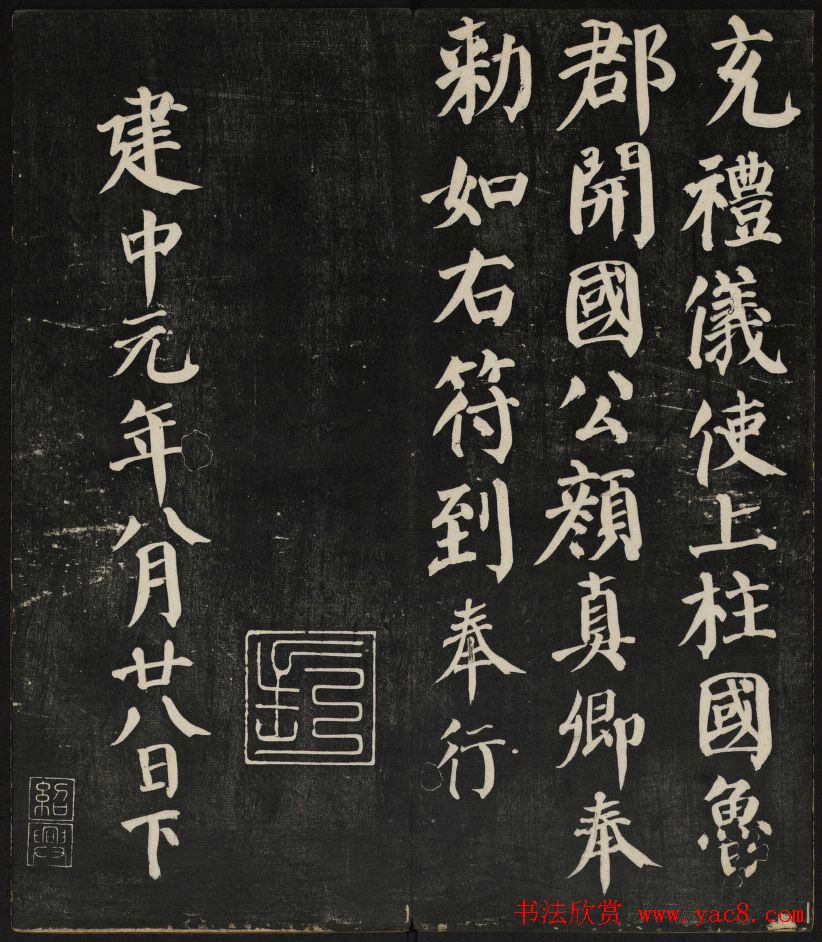 充禮儀使上柱國魯
郡開國公顏真卿奉
勅如右符到奉行
建中元年八月廿八日下
紹興
书法欣赏 www.yac8.com